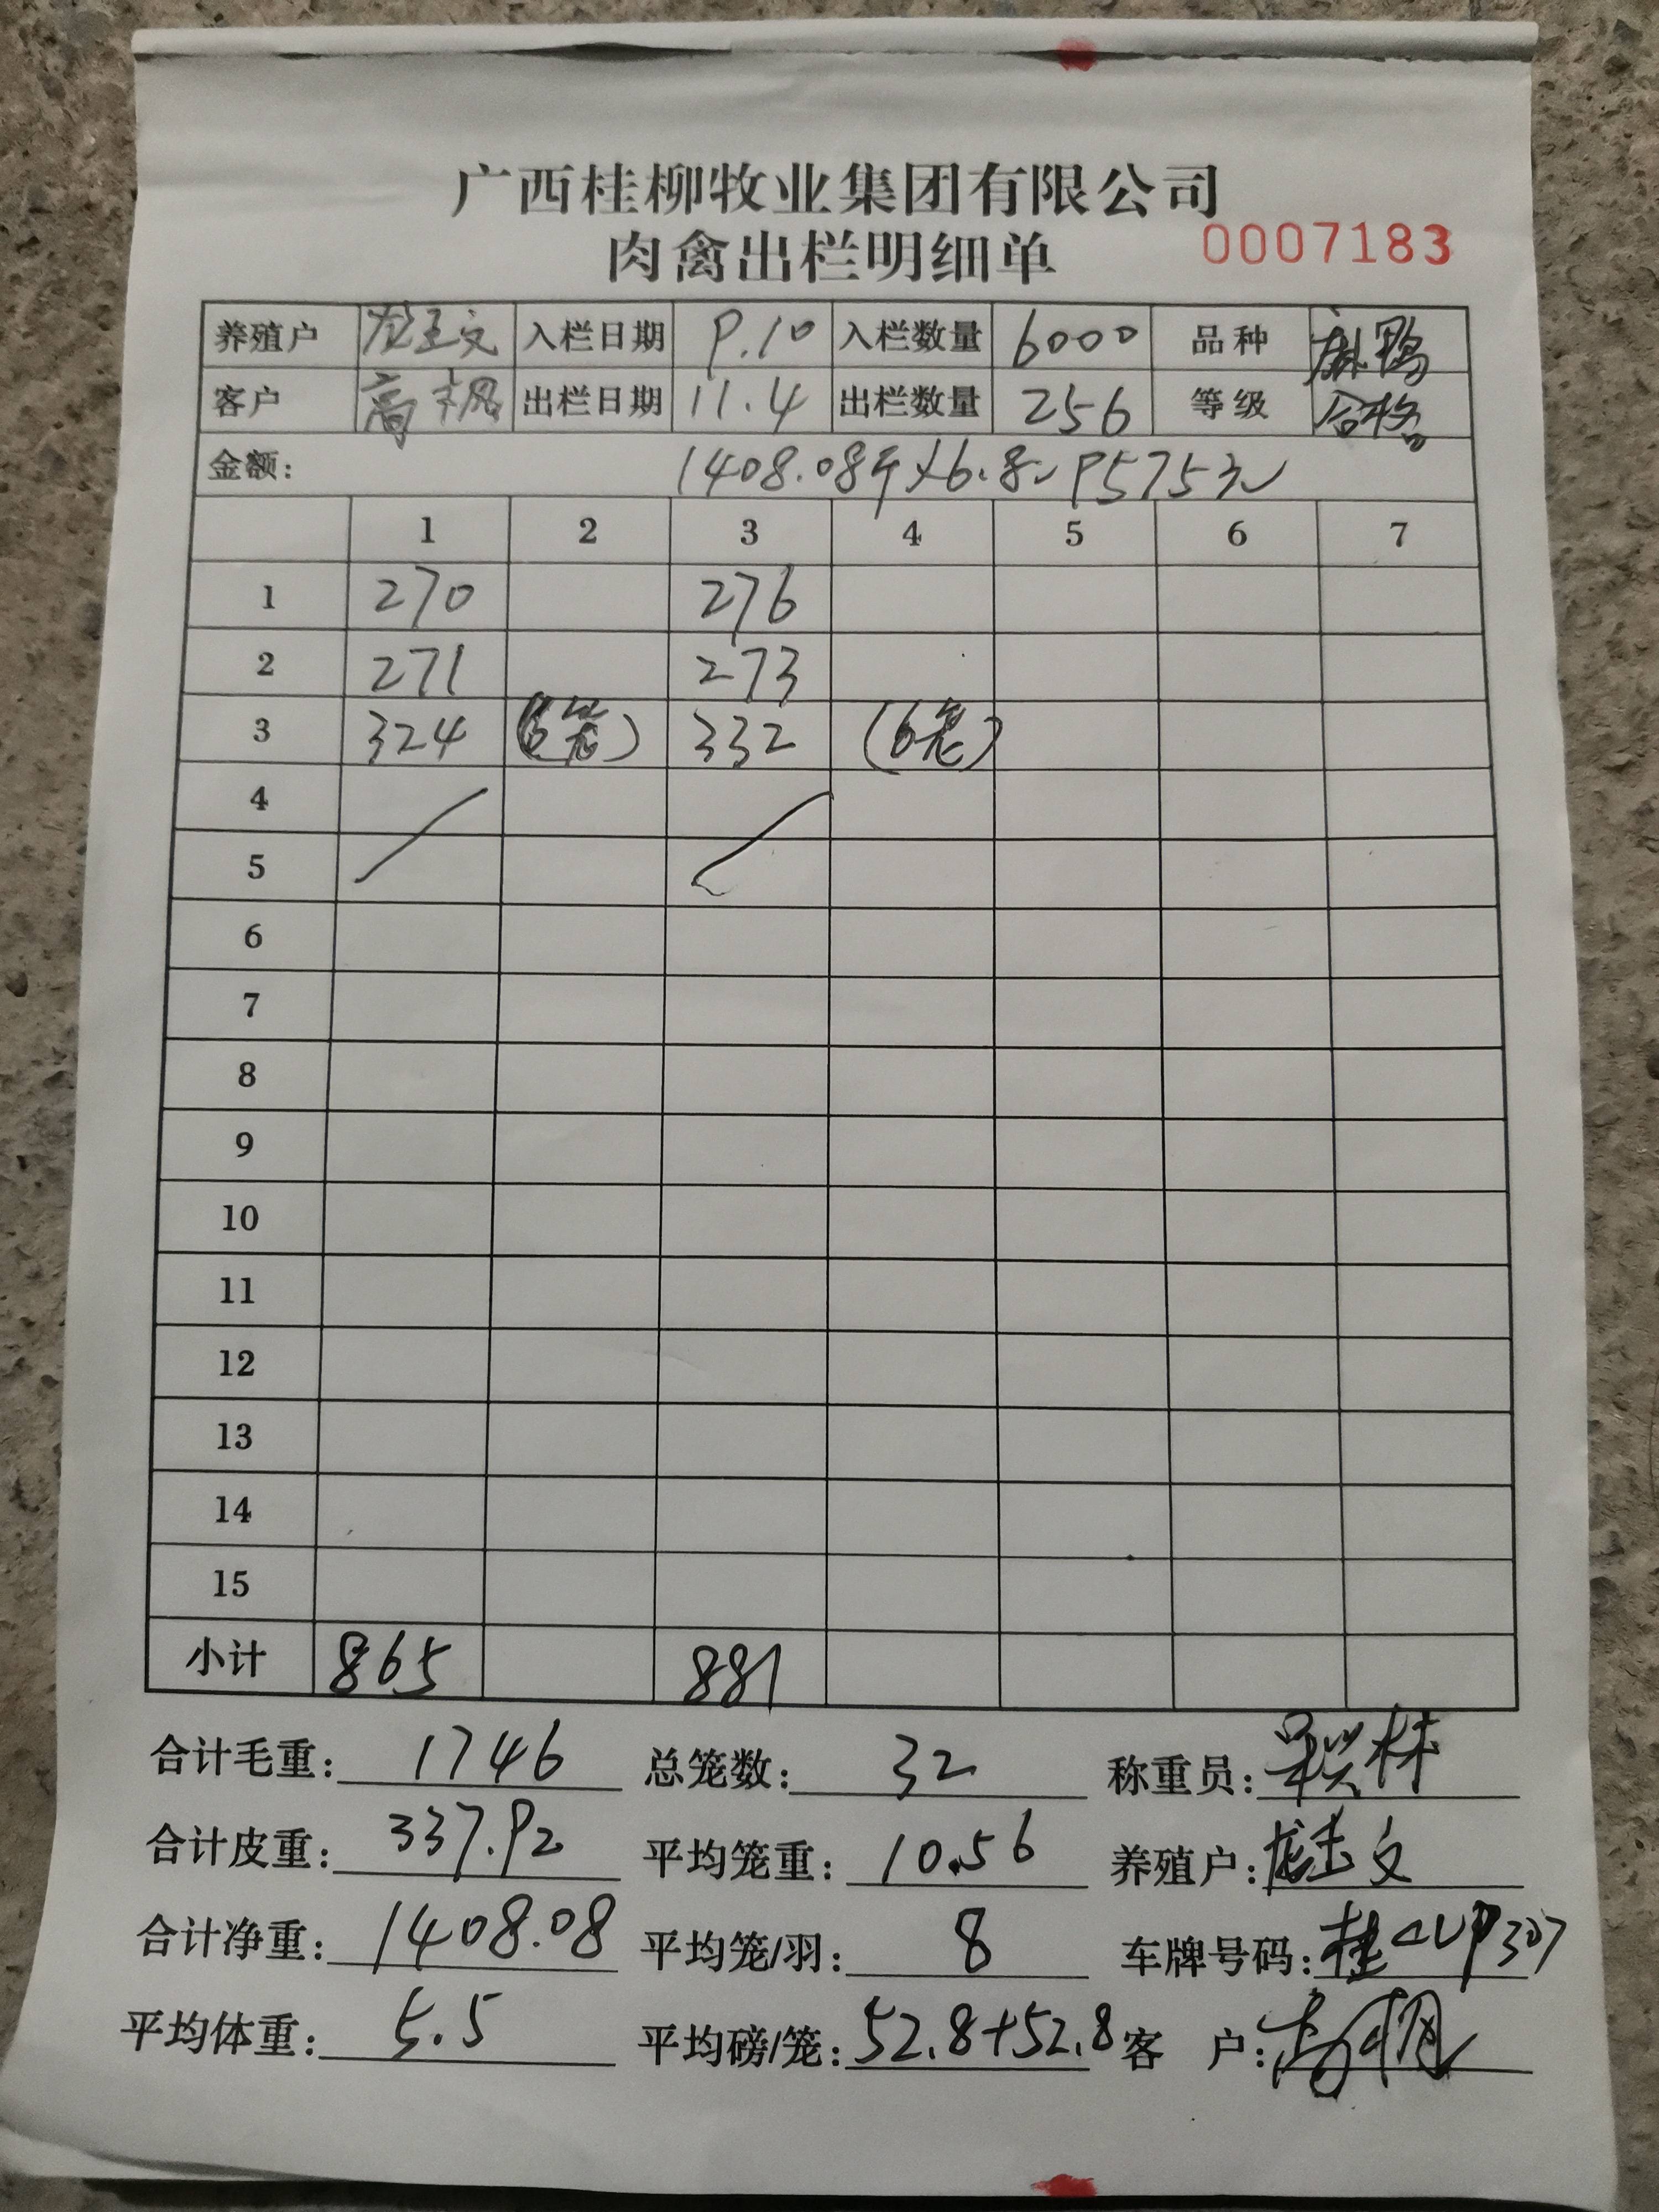 广西桂柳牧业集团有限公司
肉禽出栏明细单 0007183
养殖户 龙玉文 入栏日期 9.10 入栏数量 6000 品种 麻鸭
客户 高枫 出栏日期 11.4 出栏数量 256 等级 合格
金额: 1408.08斤×6.8=9575元
1 2 3 4 5 6 7
1 270 276
2 271 273
3 324 (6笼) 332 (6笼)
4
5
6
7
8
9
10
11
12
13
14
15
小计 865 881
合计毛重: 1746 总笼数: 32 称重员:
合计皮重: 337.92 平均笼重: 10.56 养殖户: 龙玉文
合计净重: 1408.08 平均笼/羽: 8 车牌号码: 桂
平均体重: 5.5 平均磅/笼: 52.8+52.8 客 户: 高枫